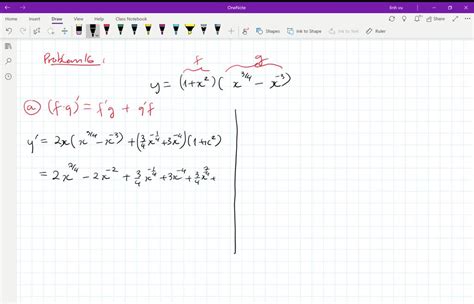 OneNote
linh vu
File Home Insert Draw View Help Class Notebook
Shapes Ink to Shape Ink to Math
Problem 16.
f g
y = (1+x²)(x^{3/4} − x^{-3})
ⓐ (f·g)' = f'g + g'f
y' = 2x(x^{3/4} − x^{-3}) + (3/4 x^{-1/4} + 3x^{-4})(1+x²)
= 2x^{7/4} − 2x^{-2} + 3/4 x^{-1/4} + 3x^{-4} + 3/4 x^{7/4} +